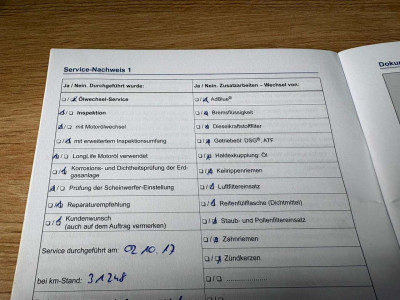 Service-Nachweis 1
Ja / Nein. Durchgeführt wurde:
Ölwechsel-Service
Inspektion
mit Motorölwechsel
mit erweitertem Inspektionsumfang
LongLife Motoröl verwendet
Korrosions- und Dichtheitsprüfung der Erd-
gasanlage
Prüfung der Scheinwerfer-Einstellung
Reparaturempfehlung
Kundenwunsch
(auch auf dem Auftrag vermerken)
Service durchgeführt am: 02.10.17
bei km-Stand: 31248
Ja / Nein. Zusatzarbeiten – Wechsel von:
AdBlue®
Bremsflüssigkeit
Dieselkraftstofffilter
Getriebeöl: DSG®, ATF
Haldexkupplung: Öl
Keilrippenriemen
Luftfiltereinsatz
Reifenfüllflasche (Dichtmittel)
Staub- und Pollenfiltereinsatz
Zahnriemen
Zündkerzen